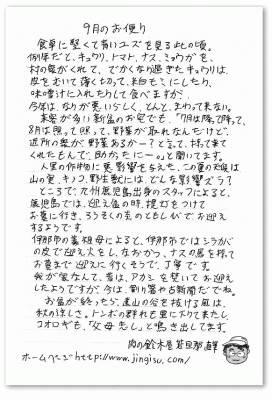 9月のお便り
食卓に堅くて青いユズを見る此の頃。
例年だと、キュウリ、トマト、ナス、ミョウガを、
村の方がくれて、でかくなり過ぎたキュウリは、
皮をむいて薄く切って、粕もみにしたり、
味噌汁に入れたりして食べますが、
今年は、なりが悪いらしく、とんと、まわって来ない。
来客が多い新盆のお宅でも、「7月は降って降って、
8月は照って照って、野菜が取れなんだけど、
近所の衆が野菜あるかー?と言って、持って来て
くれたもんで、助かったに〜。」と聞いてます。
人里の作物に悪影響を与えた、この夏の天候は
山の実、キノコ、野生獣にはどんな影響だろう?
ところで、九州鹿児島出身のスタッフによると、
鹿児島では、迎え盆の時、提灯をつけて
お墓に行き、ろうそくの火のともしびでお迎え
するようです。
伊那市の義祖母によると、伊那市ではシラカバ
の皮で迎え火をし、なおかつ、ナスの馬を持って
お墓まで迎えに行くそうで、丁寧です。
我が家なんて、昔は、アカシを焚いてお迎え
したようですが、今は、割り箸や古新聞だでね。
お盆が終ったら、遠山の谷を抜ける風は、
秋の涼しさ。トンボの群れも里に下りて来たし、
コオロギも、「父母恋し」と鳴き出してます。
肉の鈴木屋 若旦那
ホームページ http://www.jingisu.com/